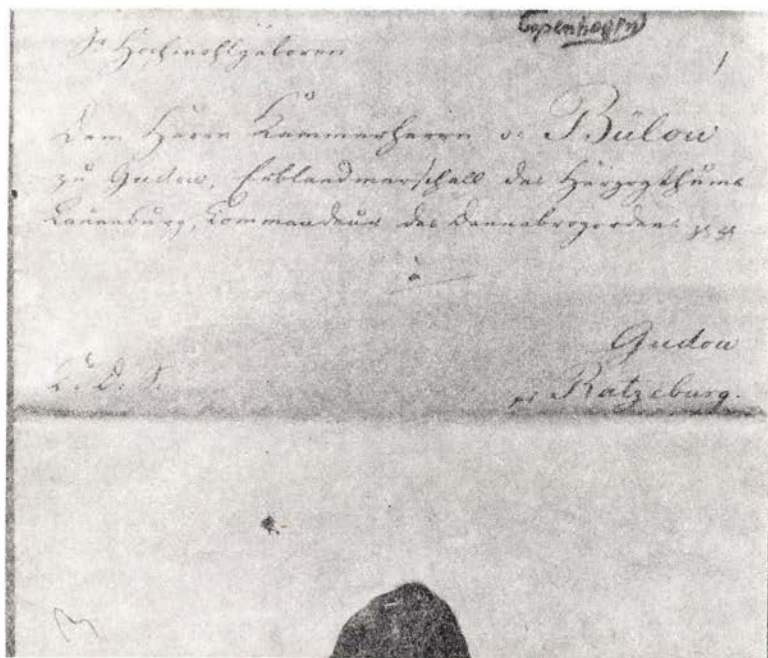 Copenhagen
Sr Hochwohlgeboren
Dem Herrn Kammerherrn v: Bülow
zu Gudow, Erblandmarschall des Herzogthums
Lauenburg, Kommandeur des Dannebrogordens
à
Gudow
K. D. S.
pr Ratzeburg.